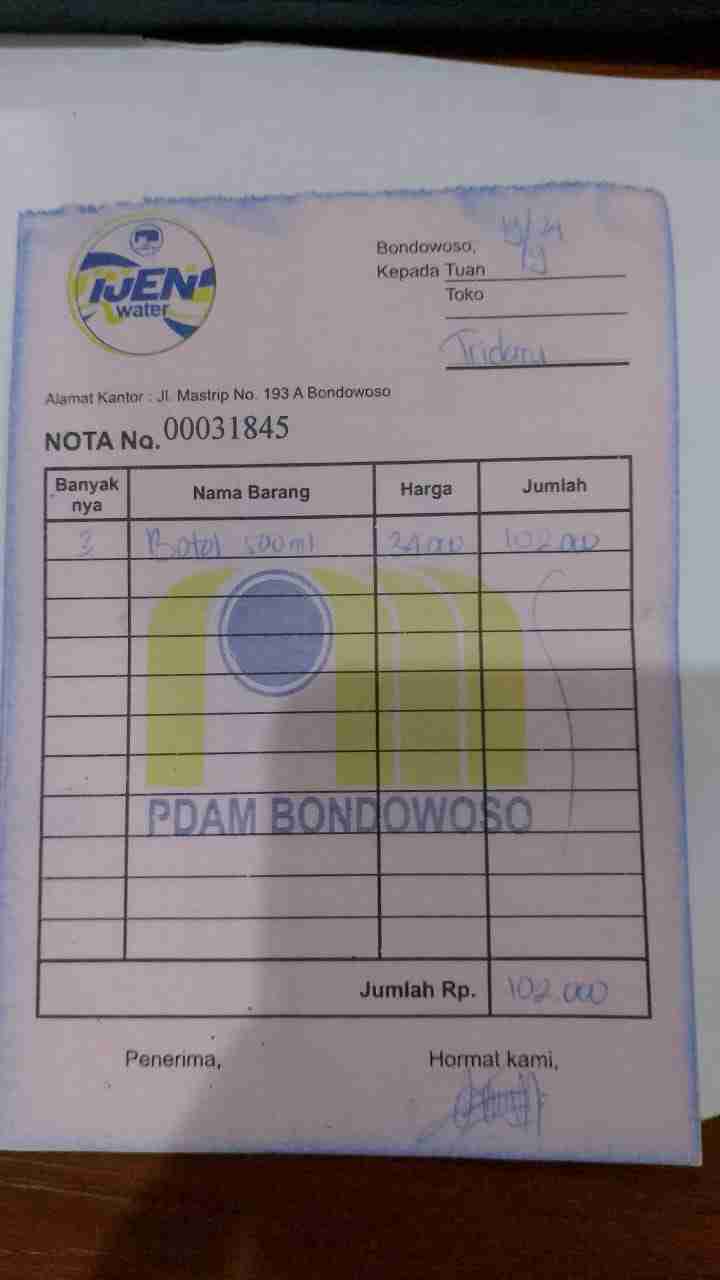 IJEN
water
Bondowoso,
Kepada Tuan
Toko
Alamat Kantor : Jl. Mastrip No. 193 A Bondowoso
NOTA No. 00031845
Banyak nya Nama Barang Harga Jumlah
3 Botol 500ml 34.000 102.000
PDAM BONDOWOSO
Jumlah Rp. 102.000
Penerima, Hormat kami,